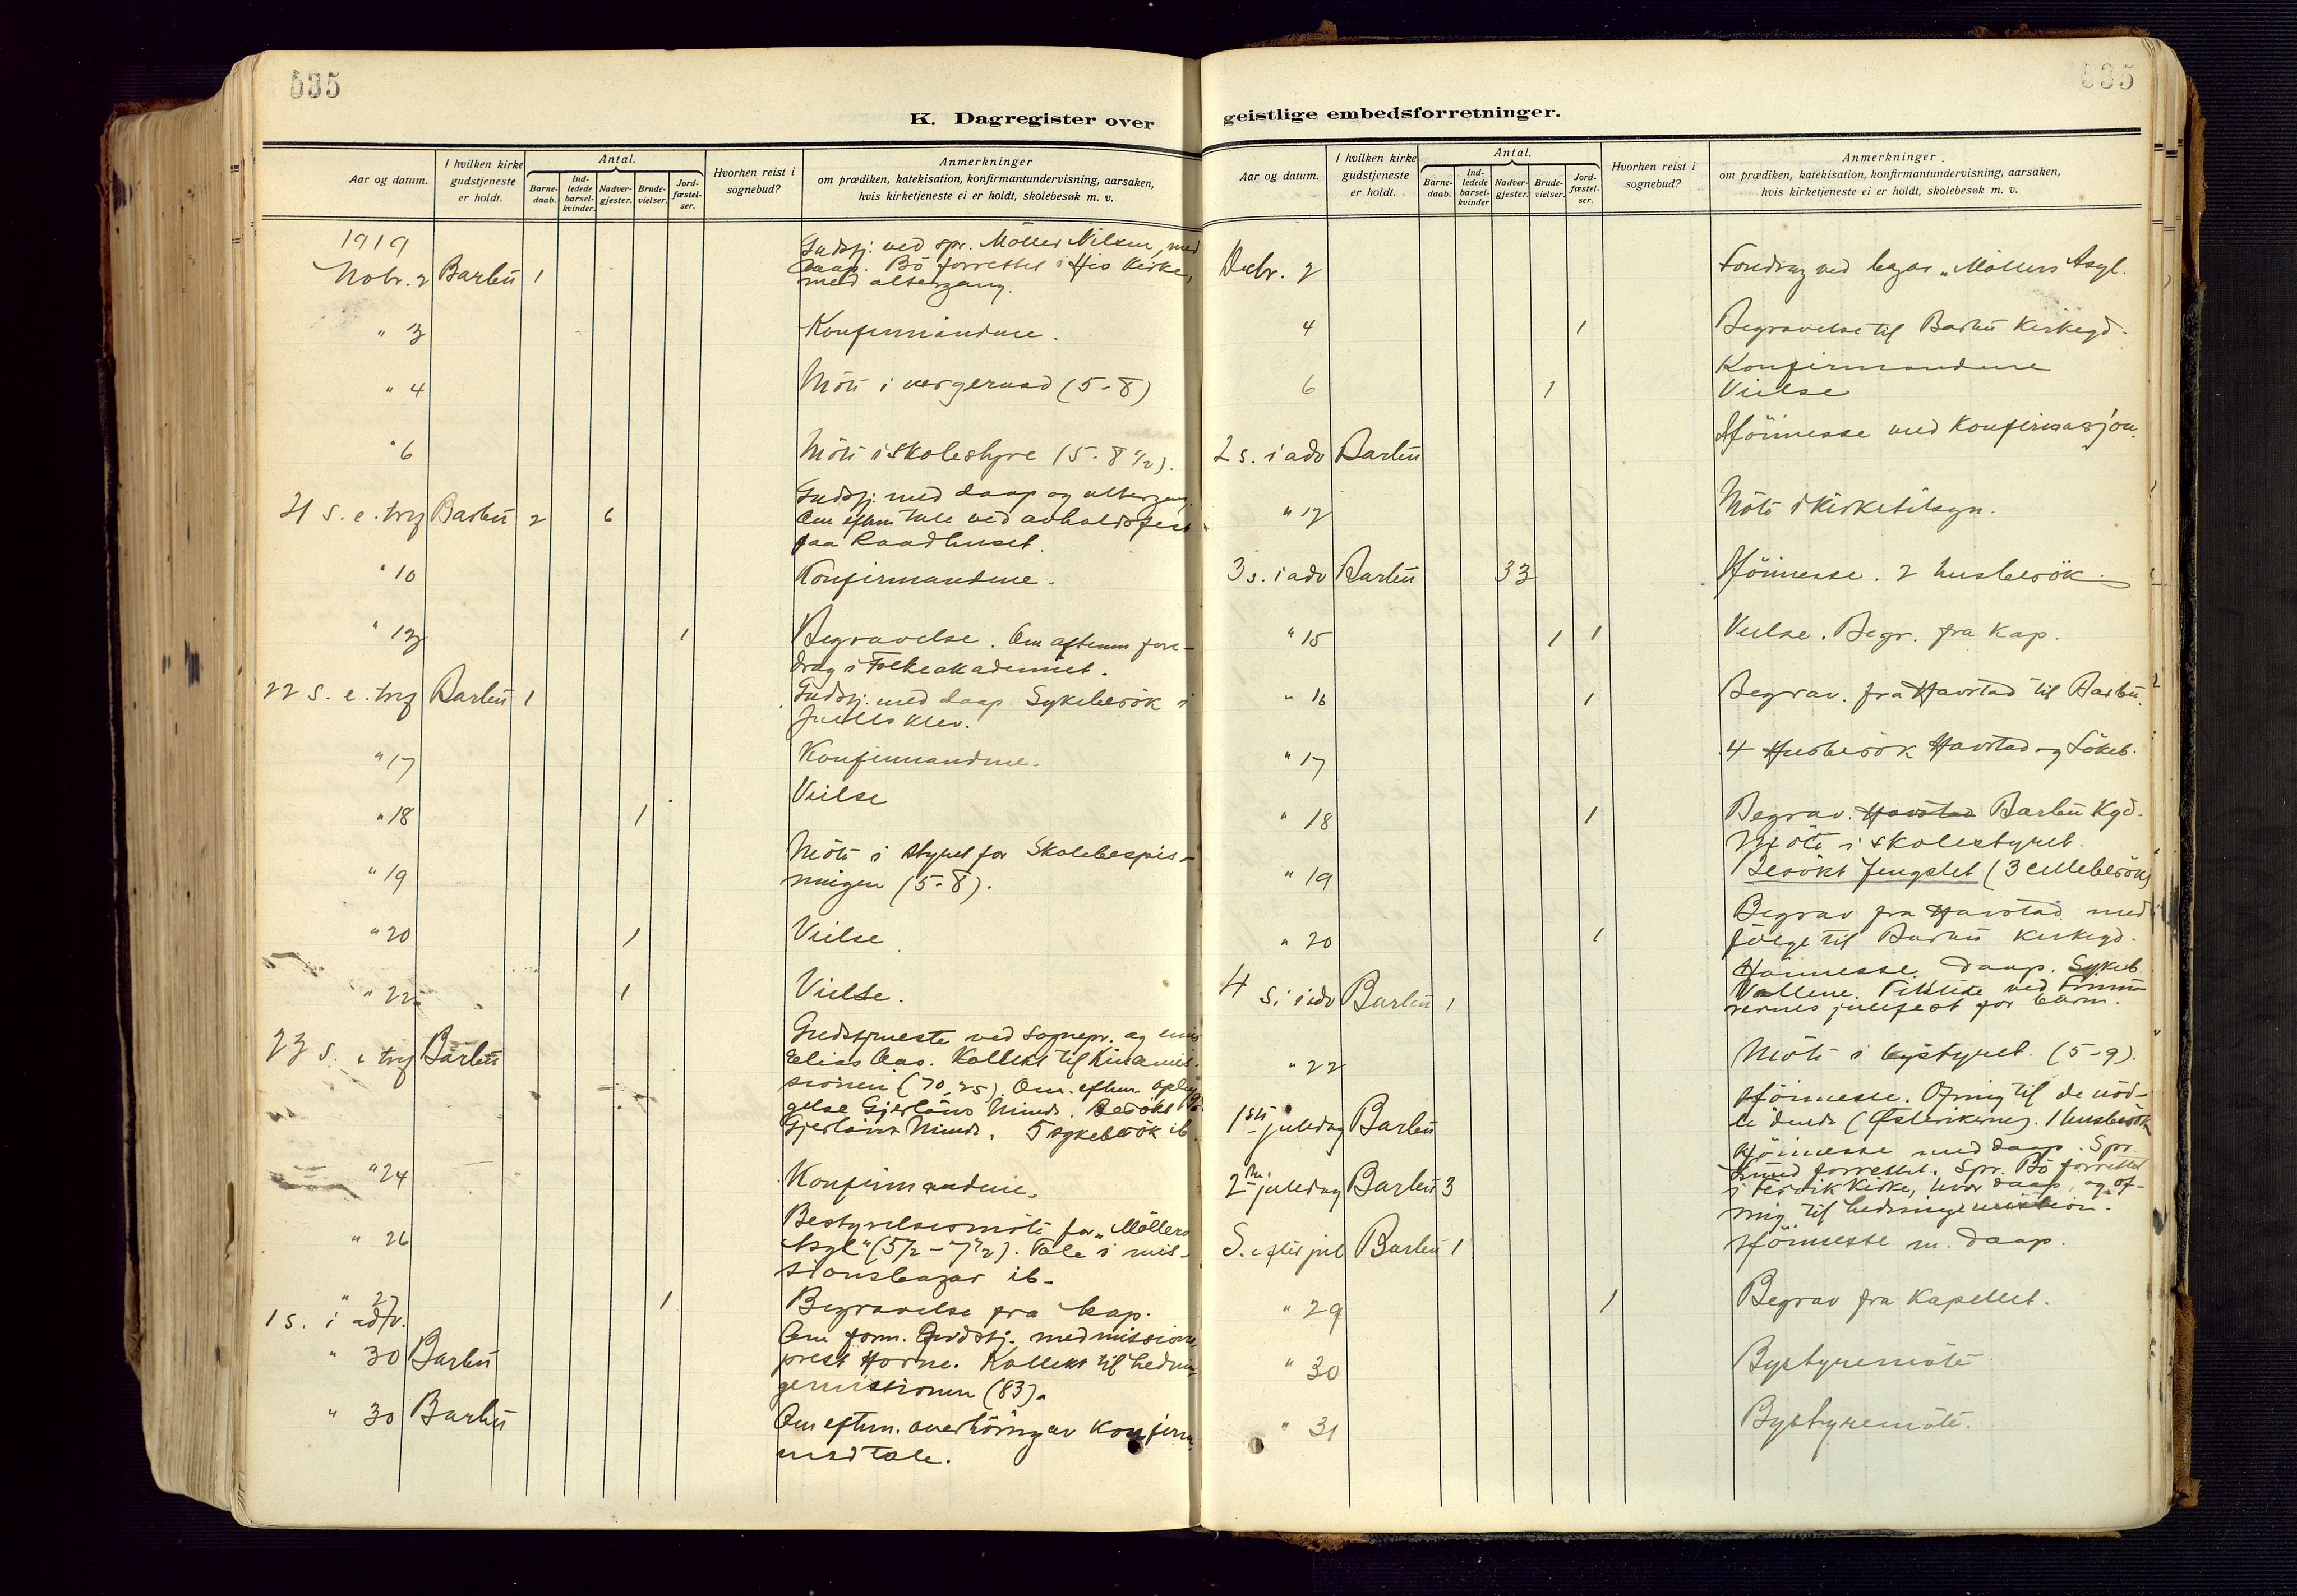 535
K. Dagregister over
Aar og datum.
I hvilken kirke gudstjeneste er holdt.
Antal.
Barne-daab.
Ind-ledede barsel-kvinder.
Nadver-gjester.
Brude-vielser.
Jord-fæstel-ser.
Hvorhen reist i sognebud?
Anmerkninger
om prædiken, katekisation, konfirmantundervisning, aarsaken,
hvis kirketjeneste ei er holdt, skolebesøk m. v.
1919
Nobr. 2 Barbu 1 Gudstj. ved spr. Möller Nilsen, med
daap. Bö forrettet i His Kirke,
med altergang.
" 3 Konfirmandene.
" 4 Möte i vergeraad (5-8)
" 6 Möte i Skolestyre (5-8 1/2).
21 S. e. tref Barbu 2 6 Gudstj. med daap og altergang.
Om eftm tale ved avholdsfest
paa Raadhuset.
" 10 Konfirmandene.
" 13 1 Begravelse. Om aftenen fore-
drag i Folkeakademiet.
22 S. e. tref Barbu 1 Gudstj. med daap. Sykebesök i
" 17 Konfirmandene.
" 18 1 Vielse
" 19 Möte i styret for Skolebespis-
ningen (5-8).
" 20 1 Vielse
" 22 1 Vielse.
23 S. e tref Barbu Gudstjeneste ved sognepr. og
Elias Aas. Kollekt til Kinamis-
sionen (70,25). Om. eftm.
Gjerlöws Minde. Besökt
Gjerlöws Minde. 5 sykebesök ib.
" 24 Konfirmandene.
" 26 Bestyrelsesmöte for "Möllers
Asyl" (5 1/2 - 7 1/2). Tale i mis-
sionsbazar ib.
" 27 1 Begravelse fra kap.
1 s. i adv.
" 30 Barbu Om form. Gudstj. med missions
prest Horne. Kollekt til hednin-
gemissionen (83).
" 30 Barbu Om eftm. overhöring av Konfirm.
med tale.
535
geistlige embedsforretninger.
Aar og datum.
I hvilken kirke gudstjeneste er holdt.
Antal.
Barne-daab.
Ind-ledede barsel-kvinder
Nadver-gjester.
Brude-vielser.
Jord-fæstel-ser.
Hvorhen reist i sognebud?
Anmerkninger
om prædiken, katekisation, konfirmantundervisning, aarsaken,
hvis kirketjeneste ei er holdt, skolebesøk m. v.
Decbr. 2 Foredrag ved bazar "Möllers Asyl.
4 1 Begravelse til Barbu Kirkegd.
Konfirmandene
6 1 Vielse
2 s. i adv Barbu Höimesse med Konfirmasjon.
" 12 Möte i Kirketilsyn.
3 s. i adv Barbu 33 Höimesse. 2 husbesök.
" 15 1 1 Vielse. Begr. fra Kap.
" 16 1 Begrav. fra Havstad til Barbu.
" 17 4 Husbesök Havstad og Sökeb.
" 18 1 Begrav. Havstad Barbu Kgd.
Möte i skolestyret.
" 19 Besökt fengslet (3 cellebesök)
" 20 1 Begrav fra Havstad med
fölge til Barbu Kirkegd.
4 s. i adv Barbu 1 Höimesse. daap. Sykeb.
julefest for barn.
" 22 Möte i bystyret. (5-9).
1ste juledag Barbu Höimesse. Ofring til de nöd-
lidende (Österikerne). 1 husbesök
2den juledag Barbu 3 Höimesse med daap. Spr.
forrettet. Spr. Bö forrettet
Kirke, hvor daap og of-
ring til hedningemission.
S. efter jul Barbu 1 Höimesse m. daap.
" 29 1 Begrav fra Kapellet.
" 30 Bystyremöte
" 31 Bystyremöte.